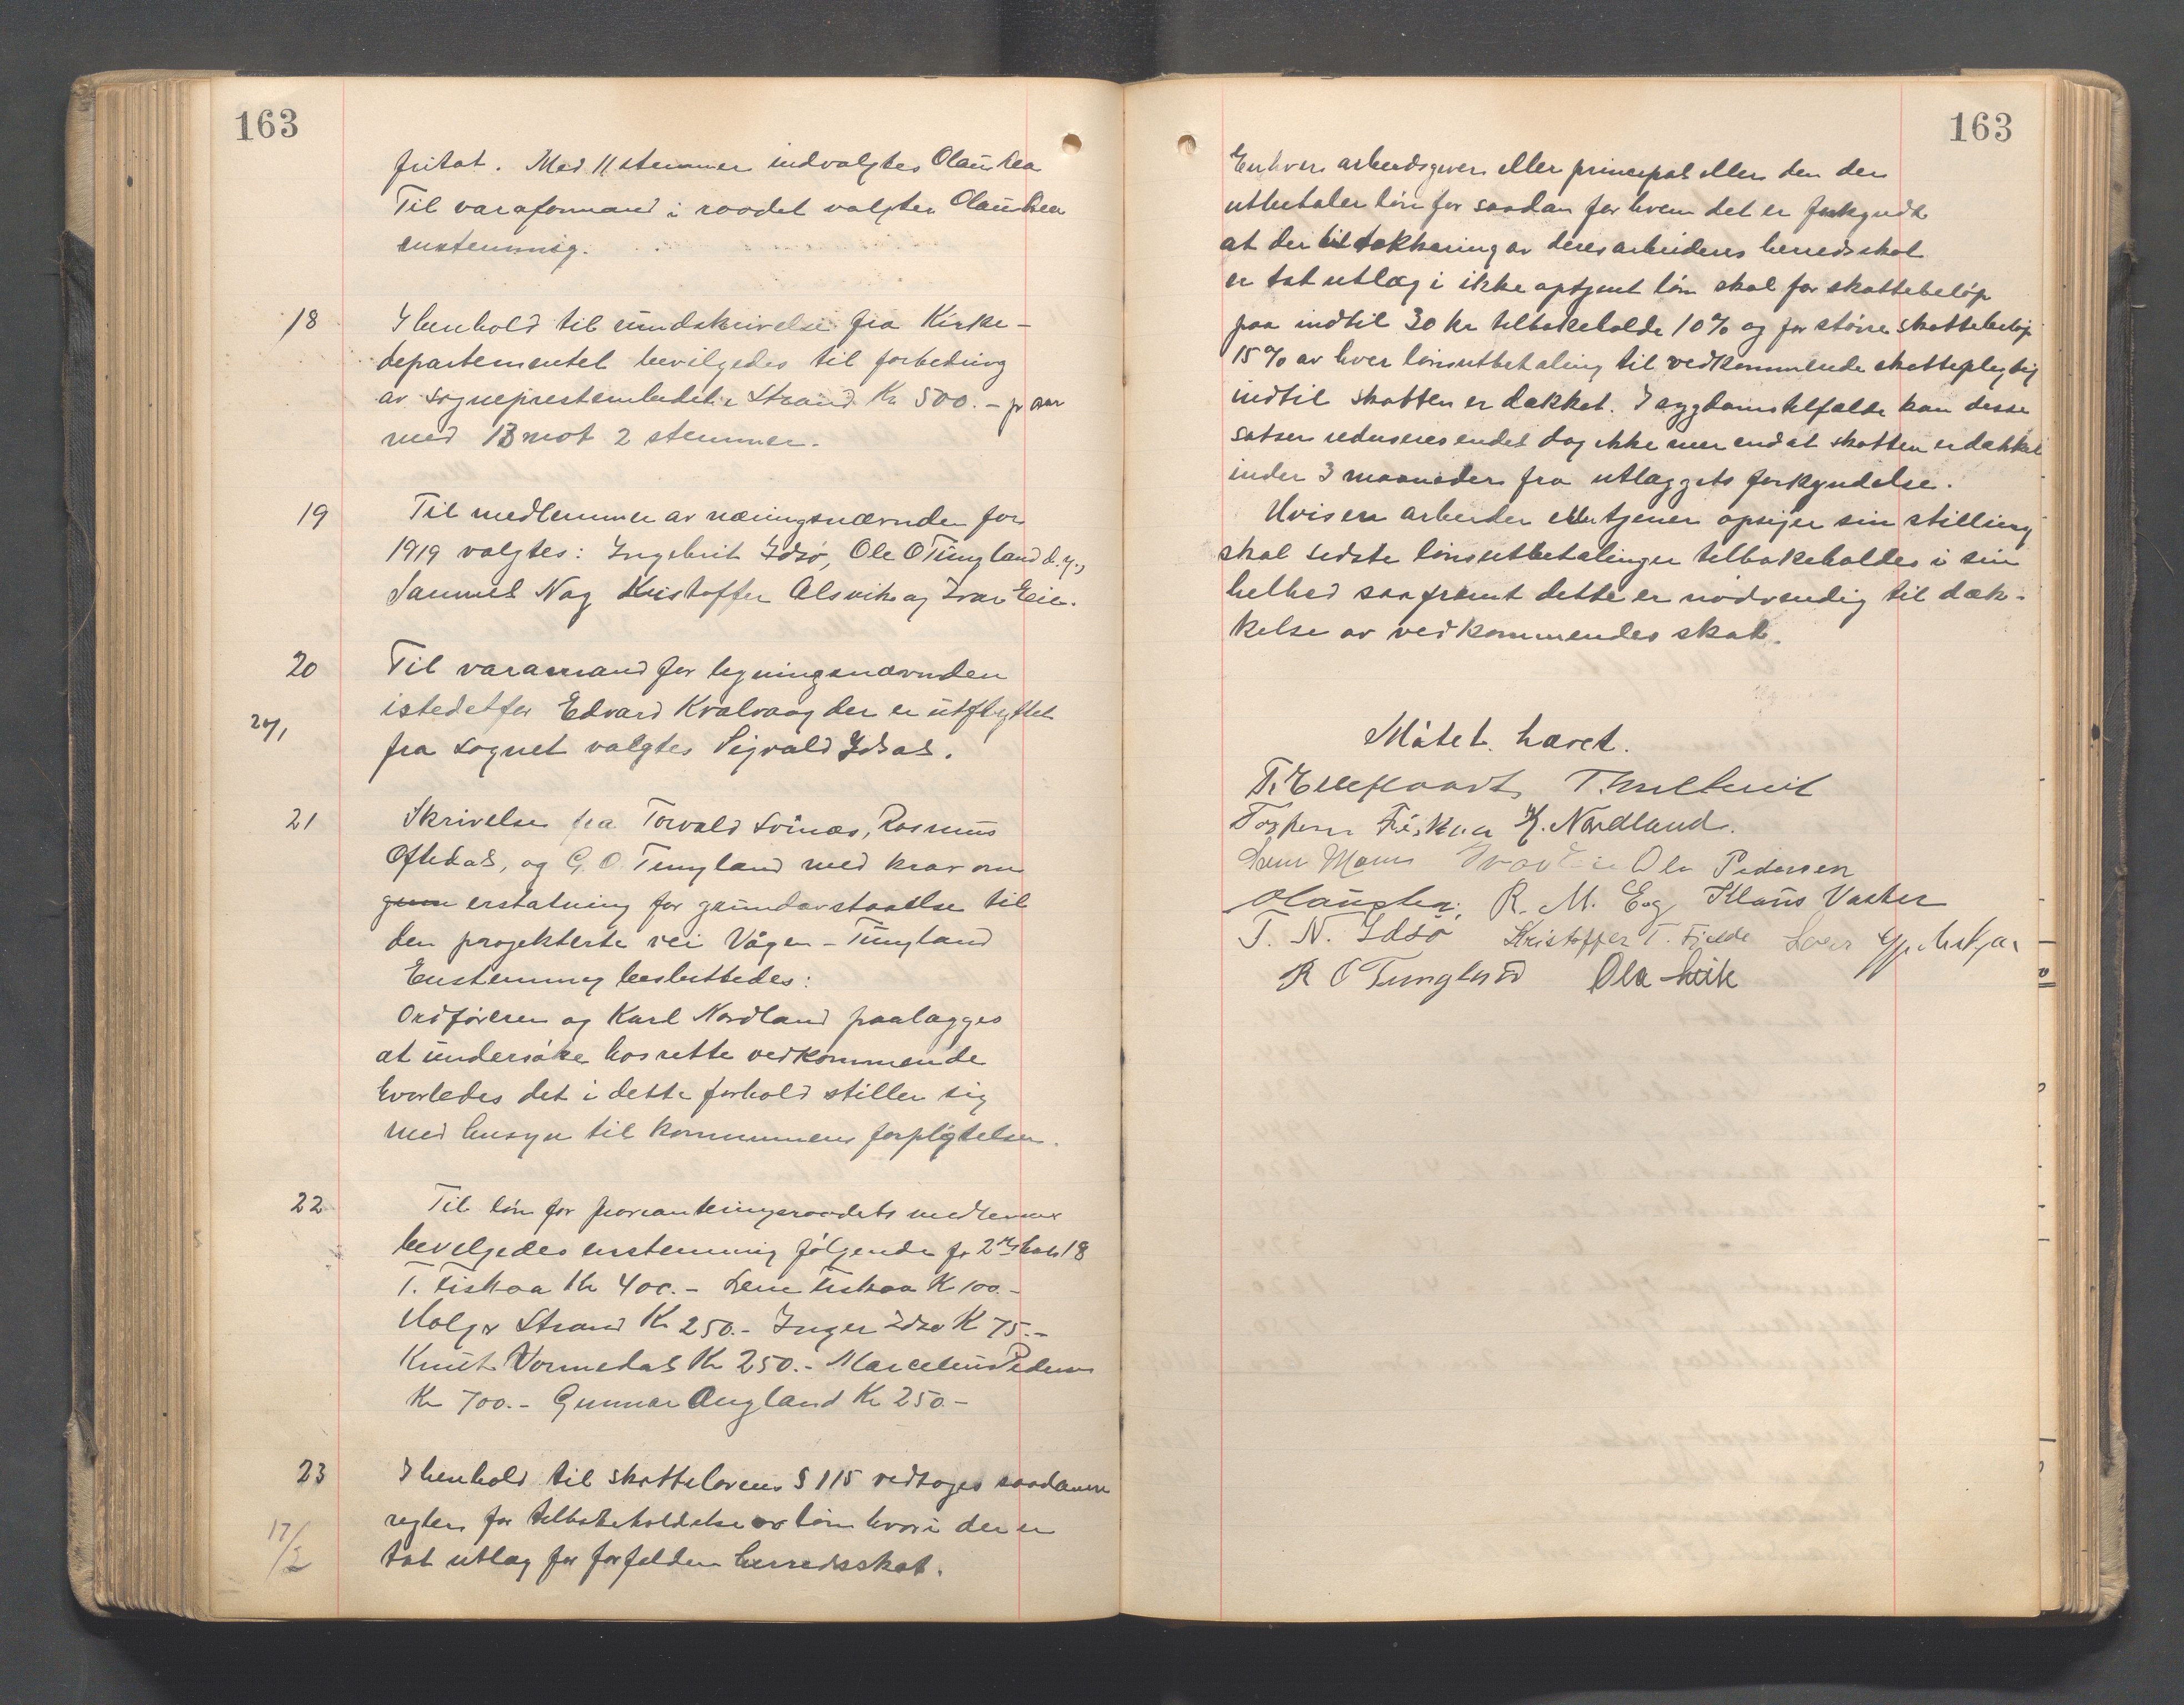 163
fritat. Med 11 stemmer indvalgtes Olaus Lea
Til varaformand i raadet valgtes Olaus Lea
enstemmig.
18 I henhold til rundskrivelse fra Kirke-
departementet bevilgedes til forbedring
av sogneprestembedet i Strand Kr 500.- pr aar
med 13 mot 2 stemmer.
19 Til medlemmer av næringsnævnden for
1919 valgtes: Ingebrit Idsø, Ole O Tungland d.y.,
Samuel Nag Kristoffer Alsvik og Ivar Eie.
20 Til varamand for ligningsnævnden
istedetfor Edvard Kvalvaag der er utflyttet
24/1
fra sognet valgtes Sigvald Idsal.
21 Skrivelse fra Torvald Svines, Rasmus
Oftedal, og G. O. Tungland med krav om
grun erstatning for grundavstaaelse til
den projekterte vei Vågen - Tungland
Enstemmig besluttedes:
Ordføreren og Karl Nordland paalægges
at undersøke hos rette vedkommende
hvorledes det i dette forhold stiller sig
med hensyn til kommunens forpligtelser.
22 Til løn for provianteringsraadets medlemmer
bevilgedes enstemmig følgende for 2det halv 18
T. Fiskaa Kr 400.- Lene Fiskaa K 100.-
Holger Strand Kr 250.- Inger Idsø K 75.-
Knut Vormedal Kr 250.- Marcelius Pedersen
Kr 700.- Gunnar Augland Kr 250.-
23 I henhold til skattelovens § 115 vedtoges saadanne
regler for tilbakeholdelse av løn hvori der er
17/2
tat utlæg for forfalden herredsskat.
163
Enhver arbeidsgiver eller principal eller den der
utbetaler løn for saadan for hvem det er forkyndt
at der til dækkning av deres arbeideres herredsskat
er tat utlæg i ikke optjent løn skal for skattebeløp
paa indtil 30 kr tilbakeholde 10% og for større skattebeløp
15% av hver lønsutbetaling til vedkommende skattepligtig
indtil skatten er dækket. I sygdomstilfælde kan disse
satser reduseres endel dog ikke mer end at skatten er dækket
inden 3 maaneder fra utlæggets forkyndelse.
Hvis en arbeider eller tjener opsiger sin stilling
skal sidste lønsutbetalinger tilbakeholdes i sin
helhed saafremt dette er nødvendig til dæk-
kelse av vedkommendes skat.
Møtet hævet.
Fiskaa K. Nordland.
Ole Pedersen
Olaus Lea. R. M. Eeg Klaus Vasker
T. N. Idsø Kristoffer T. Fjelde
R O Tungland Ola